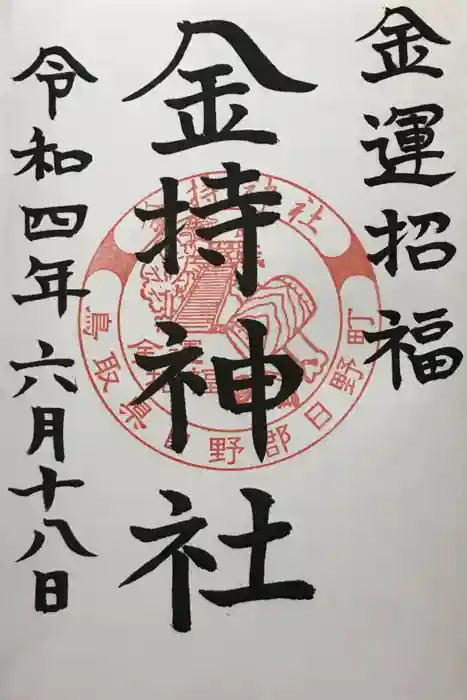 金運招福
金持神社
令和四年六月十八日
金持神社
鳥取県日野郡日野町